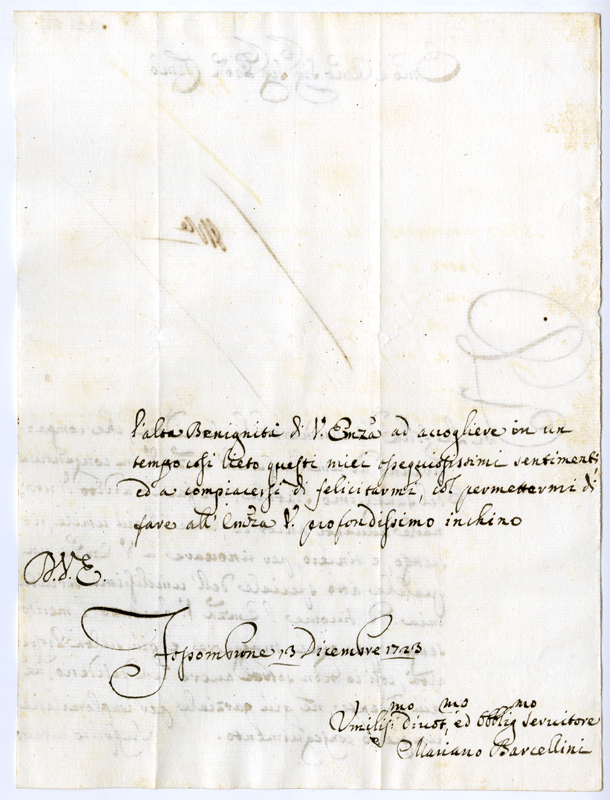 l'alta Benignità di V. Emza ad accogliere in un
tempo così lieto questi miei ossequiosissimi sentimenti
ed a compiacersi di felicitarmi, col permettermi di
fare all' Emza V. profondissimo inchino
D. V. E.
13 Dicembre 1723
Umiliss.mo Divot.mo, ed Obblig.mo servitore
Mariano Barcellini